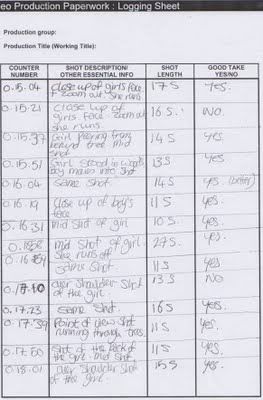 eo Production Paperwork : Logging Sheet
Production group:
Production Title (Working Title):
COUNTER NUMBER SHOT DESCRIPTION/ OTHER ESSENTIAL INFO SHOT LENGTH GOOD TAKE YES/NO
0.15.04 close up of girls face + zoom out she runs 17 S Yes.
0.15.21 close up of girls face - zoom out she runs 16 S. No.
0.15.37 Girl peering from behind tree mid shot 14 S Yes.
0.15.51 Girl in woods boy moves into shot 13 S Yes.
0.16.04 same shot 14 S yes (better)
0.16.19 close up of boy's face 11 S yes.
0.16.31 Mid shot of girl 10 S. yes.
Mid shot of girl. She runs off 27 S. yes.
same shot 11 S yes
over shoulder shot of the girl. 13 S No
0.17.23 same shot. 16 S yes
0.17.39 Point of view shot running through trees. 11 S Yes.
0.17.50 Shot of the back of the girl - mid shot. 11 S Yes.
0.18.01 over shoulder shot of the girl. 15 S Yes.